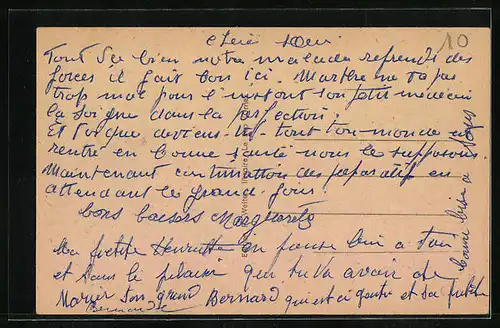 10
Chère
Tout va bien notre malade reprend des
forces il fait bon ici. Marthe ne va pas
trop mal pour l'instant son petit médecin
la soigne dans la perfection.
Et toi que deviens-tu - tout ton monde est
rentré en bonne santé nous le supposons.
Maintenant continuation des préparatifs en
attendant le grand jour.
bons baisers Marguerite
La petite Henriette en pense bien à toi
et dans le plaisir que tu va avoir de
Marier son grand Bernard qui est et sa petite
Bernarde
bonne bise à